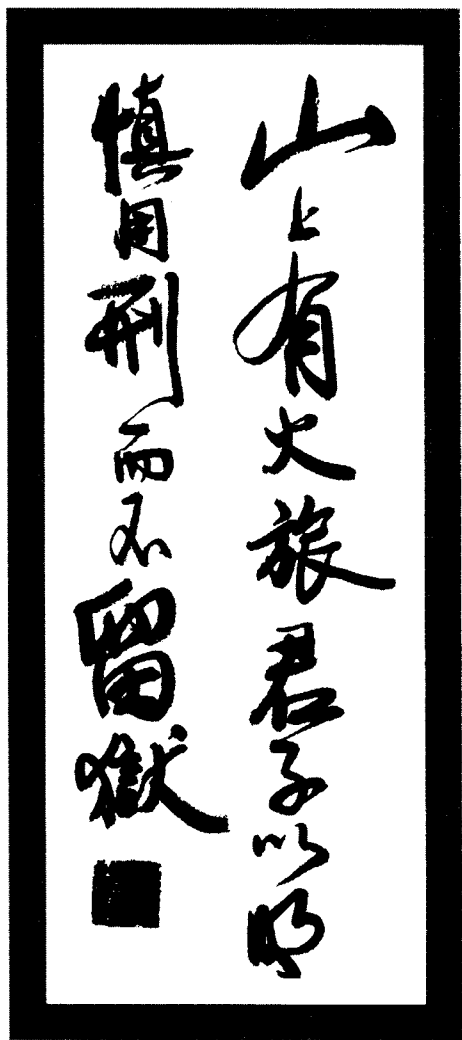 山上有火旅君子以明
慎用刑而不留獄